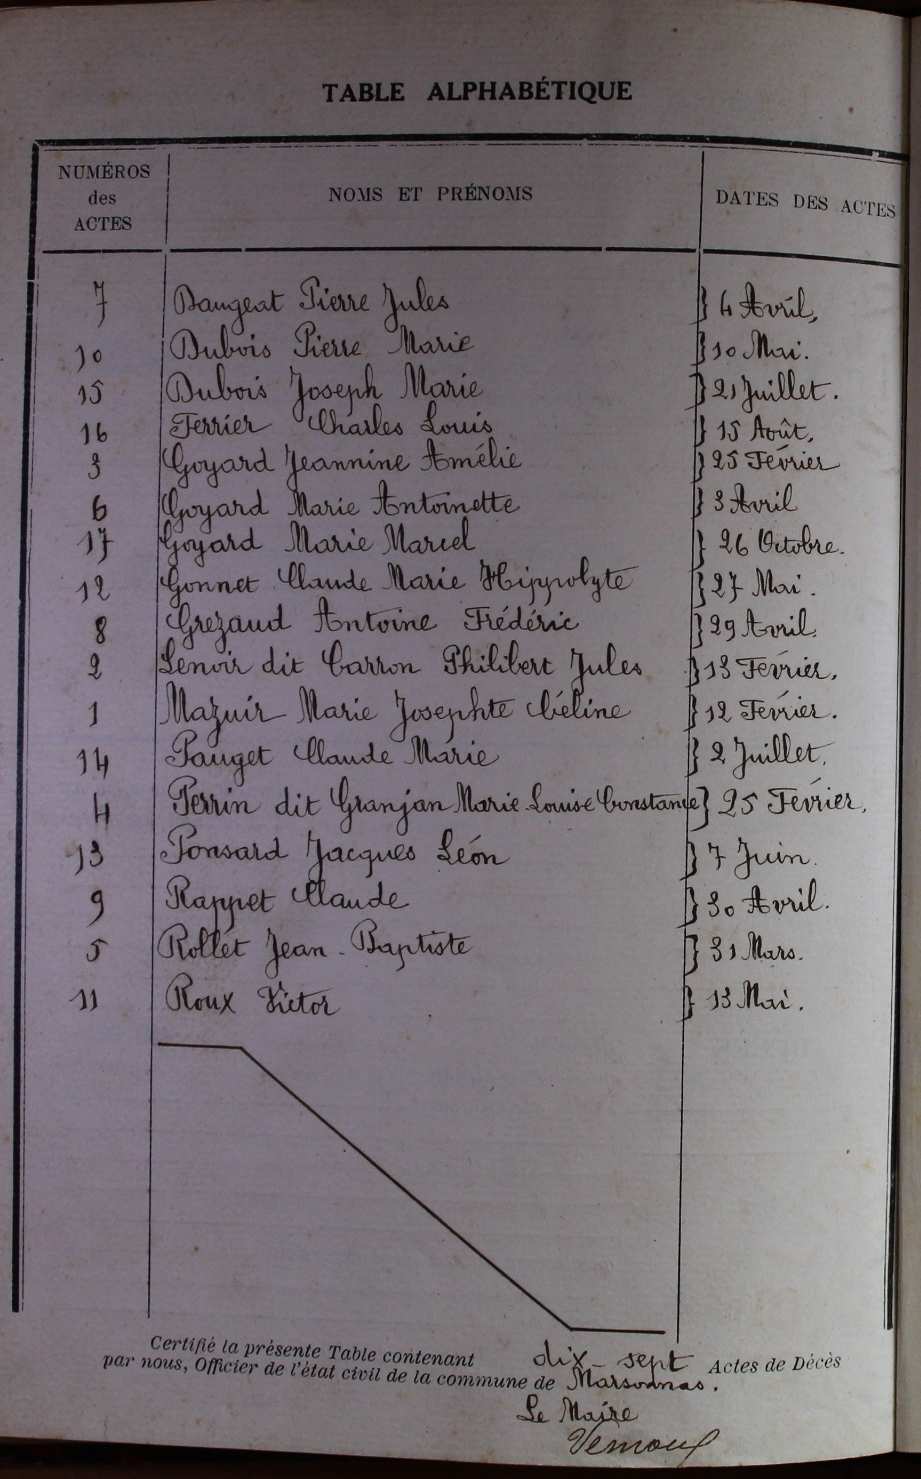 TABLE ALPHABÉTIQUE
NUMÉROS des ACTES NOMS ET PRÉNOMS DATES DES ACTES
7 Baugeat Pierre Jules } 4 Avril,
10 Dubois Pierre Marie } 10 Mai.
15 Dubois Joseph Marie } 21 Juillet.
16 Ferrier Charles Louis } 15 Août,
3 Goyard Jeannine Amélie } 25 Février
6 Goyard Marie Antoinette } 3 Avril
17 Goyard Marie Marcel } 26 Octobre.
12 Gonnet Claude Marie Hippolyte } 27 Mai.
8 Grezaud Antoine Frédéric } 29 Avril.
2 Lenoir dit Carron Philibert Jules } 13 Février.
1 Mazuir Marie Josephte Céline } 12 Février.
14 Pauget Claude Marie } 2 Juillet.
4 Perrin dit Granjan Marie Louise Constance } 25 Février.
13 Ponsard Jacques Léon } 7 Juin.
9 Rappet Claude } 30 Avril.
5 Rollet Jean-Baptiste } 31 Mars.
11 Roux Victor } 13 Mai.
Certifié la présente Table contenant dix-sept Actes de Décès
par nous, Officier de l'état civil de la commune de Marsonnas.
Le Maire